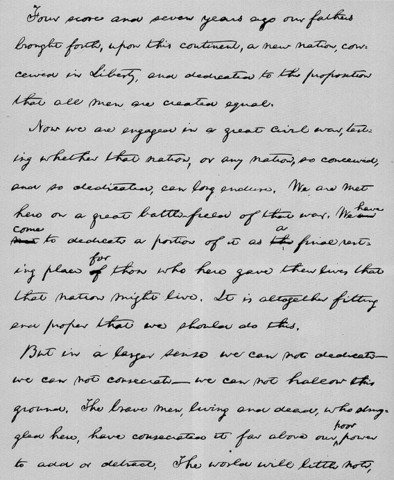 Four score and seven years ago our fathers
brought forth, upon this continent, a new nation, con-
ceived in Liberty, and dedicated to the proposition
that all men are created equal.
Now we are engaged in a great civil war, test-
ing whether that nation, or any nation, so conceived,
and so dedicated, can long endure. We are met
here on a great battle-field of that war. We are have
come met to dedicate a portion of it as the a final rest-
ing place of for those who here gave their lives that
that nation might live. It is altogether fitting
and proper that we should do this.
But in a larger sense we can not dedicate—
we can not consecrate— we can not hallow this
ground. The brave men, living and dead, who strug-
gled here, have consecrated it far above our poor power
to add or detract. The world will little note,